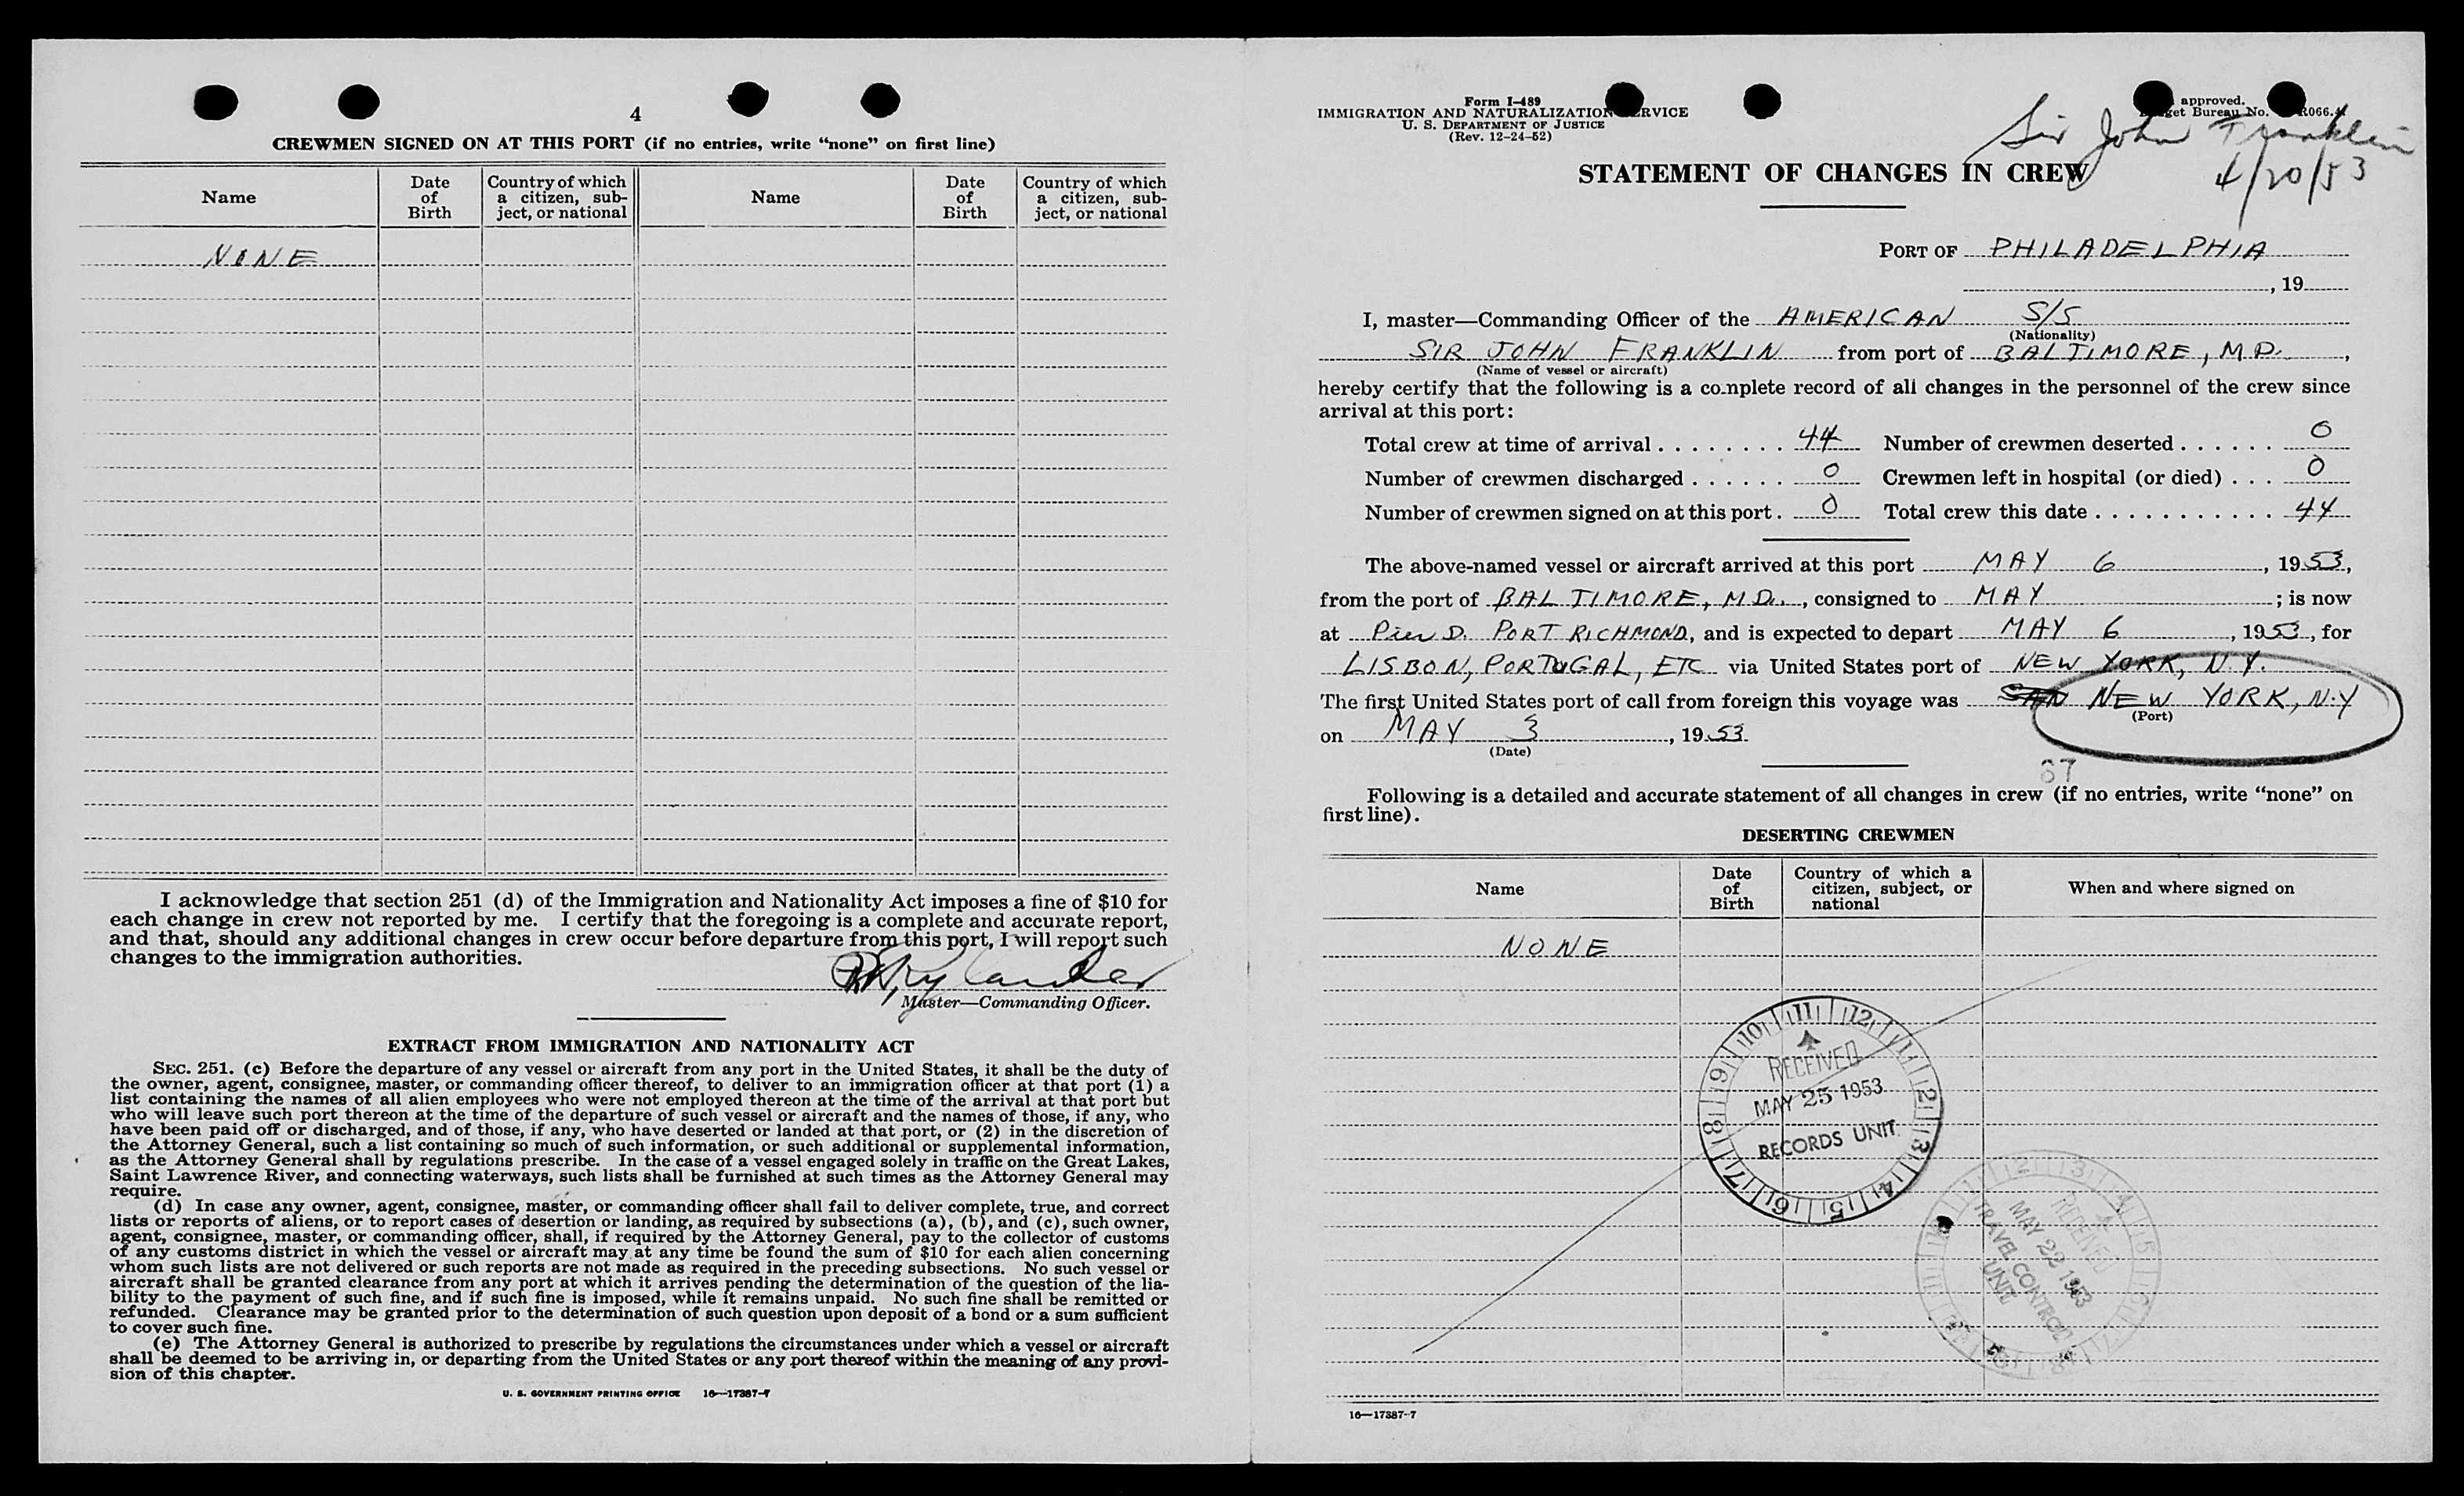 4
CREWMEN SIGNED ON AT THIS PORT (if no entries, write “none” on first line)
Name
Date of Birth
Country of which a citizen, subject, or national
Name
Date of Birth
Country of which a citizen, subject, or national
NONE
I acknowledge that section 251 (d) of the Immigration and Nationality Act imposes a fine of $10 for
each change in crew not reported by me. I certify that the foregoing is a complete and accurate report,
and that, should any additional changes in crew occur before departure from this port, I will report such
changes to the immigration authorities.
Master—Commanding Officer.
EXTRACT FROM IMMIGRATION AND NATIONALITY ACT
SEC. 251. (c) Before the departure of any vessel or aircraft from any port in the United States, it shall be the duty of
the owner, agent, consignee, master, or commanding officer thereof, to deliver to an immigration officer at that port (1) a
list containing the names of all alien employees who were not employed thereon at the time of the arrival at that port but
who will leave such port thereon at the time of the departure of such vessel or aircraft and the names of those, if any, who
have been paid off or discharged, and of those, if any, who have deserted or landed at that port, or (2) in the discretion of
the Attorney General, such a list containing so much of such information, or such additional or supplemental information,
as the Attorney General shall by regulations prescribe. In the case of a vessel engaged solely in traffic on the Great Lakes,
Saint Lawrence River, and connecting waterways, such lists shall be furnished at such times as the Attorney General may
require.
(d) In case any owner, agent, consignee, master, or commanding officer shall fail to deliver complete, true, and correct
lists or reports of aliens, or to report cases of desertion or landing, as required by subsections (a), (b), and (c), such owner,
agent, consignee, master, or commanding officer, shall, if required by the Attorney General, pay to the collector of customs
of any customs district in which the vessel or aircraft may at any time be found the sum of $10 for each alien concerning
whom such lists are not delivered or such reports are not made as required in the preceding subsections. No such vessel or
aircraft shall be granted clearance from any port at which it arrives pending the determination of the question of the lia-
bility to the payment of such fine, and if such fine is imposed, while it remains unpaid. No such fine shall be remitted or
refunded. Clearance may be granted prior to the determination of such question upon deposit of a bond or a sum sufficient
to cover such fine.
(e) The Attorney General is authorized to prescribe by regulations the circumstances under which a vessel or aircraft
shall be deemed to be arriving in, or departing from the United States or any port thereof within the meaning of any provi-
sion of this chapter.
U. S. GOVERNMENT PRINTING OFFICE 16—17387-7
Form I-489
IMMIGRATION AND NATURALIZATION SERVICE
U. S. DEPARTMENT OF JUSTICE
(Rev. 12-24-52)
approved.
Bureau No. R066.4
Sir John Franklin
4/20/53
STATEMENT OF CHANGES IN CREW
PORT OF PHILADELPHIA
, 19
I, master—Commanding Officer of the AMERICAN S/S
(Nationality)
SIR JOHN FRANKLIN from port of BALTIMORE, MD. ,
(Name of vessel or aircraft)
hereby certify that the following is a complete record of all changes in the personnel of the crew since
arrival at this port:
Total crew at time of arrival . . . . . . . . 44 Number of crewmen deserted . . . . . . 0
Number of crewmen discharged . . . . . . 0 Crewmen left in hospital (or died) . . . 0
Number of crewmen signed on at this port . 0 Total crew this date . . . . . . . . . . . 44
The above-named vessel or aircraft arrived at this port MAY 6 , 1953,
from the port of BALTIMORE, MD. , consigned to MAY ; is now
at Pier D. PORT RICHMOND, and is expected to depart MAY 6 , 1953, for
LISBON, PORTUGAL, ETC via United States port of NEW YORK, N.Y.
The first United States port of call from foreign this voyage was SAN NEW YORK, N.Y
(Port)
on MAY 3 , 1953
(Date)
67
Following is a detailed and accurate statement of all changes in crew (if no entries, write “none” on
first line).
DESERTING CREWMEN
Name
Date of Birth
Country of which a citizen, subject, or national
When and where signed on
NONE
RECEIVED
MAY 25 1953
RECORDS UNIT
RECEIVED
MAY 22 1953
TRAVEL CONTROL
UNIT
16—17387-7